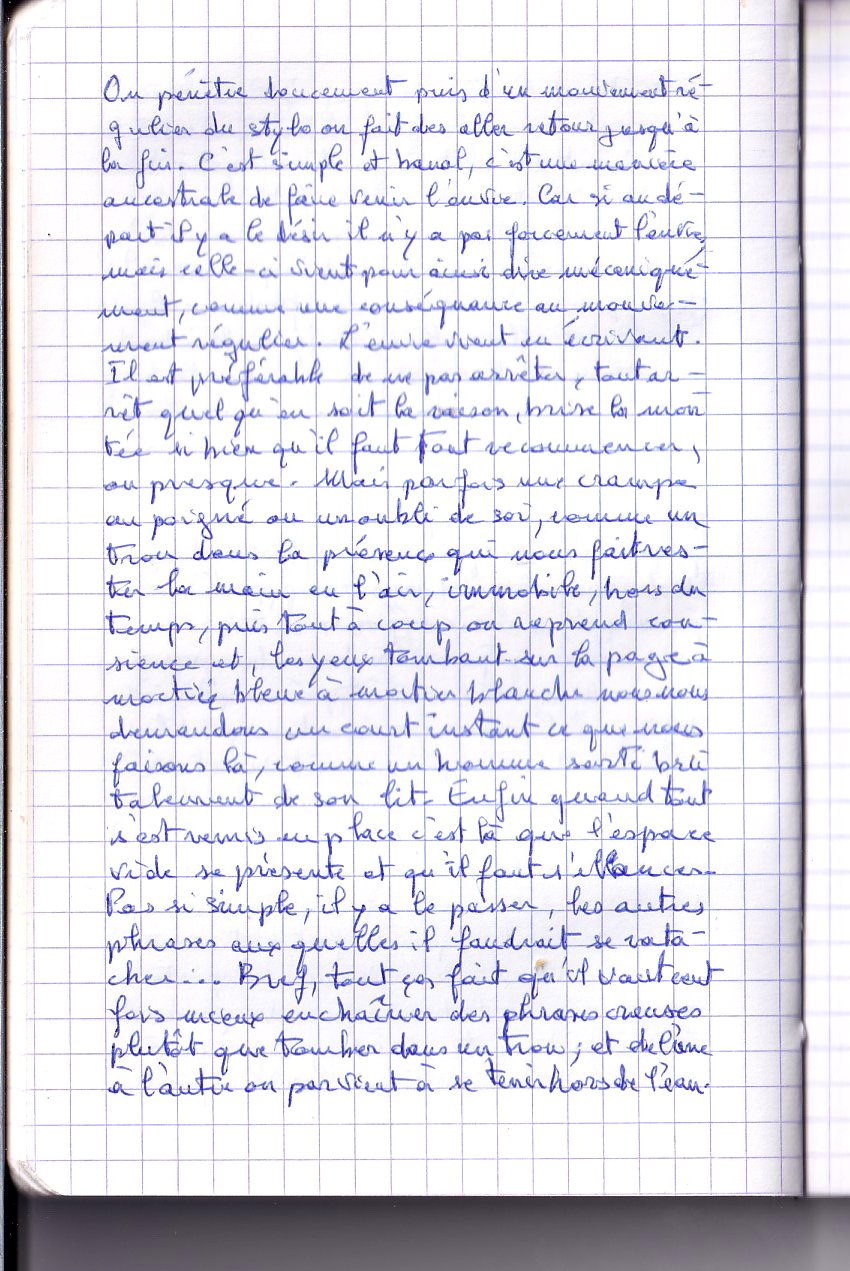 On pénètre doucement puis d'un mouvement ré-
gulier du stylo on fait des aller retour jusqu'à
la fin. C'est simple et banal, c'est une manière
ancestrale de faire venir l'envie. Car si au dé-
part il y a le désir il n'y a pas forcement l'envie,
mais celle-ci vient pour ainsi dire mécanique-
ment, comme une conséquance au mouve-
ment régulier. L'envie vient en écrivant.
Il est préférable de ne pas arrêter, tout ar-
rêt quel qu'en soit la raison, brise la mon
tée si bien qu'il faut tout recommencer,
ou presque. Mais parfois une crampe
au poigné ou un oubli de soi, comme un
trou dans la présence qui nous fait res-
ter la main en l'air, immobile, hors du
temps, puis tout à coup on reprend con-
sience et, les yeux tombant sur la page à
moitié bleue à moitier blanche nous nous
demandons un court instant ce que nous
faisons là, comme un homme sorti bru
talement de son lit. Enfin quand tout
s'est remis en place c'est là que l'espace
vide se présente et qu'il faut s'élancer.
Pas si simple, il y a le passer, les autres
phrases aux quelles il faudrait se rata-
cher... Bref, tout ças fait qu'il vaut cent
fois mieux enchaîner des phrases creuses
plutôt que tomber dans un trou; et de l'une
à l'autre on parvient à se tenir hors de l'eau.